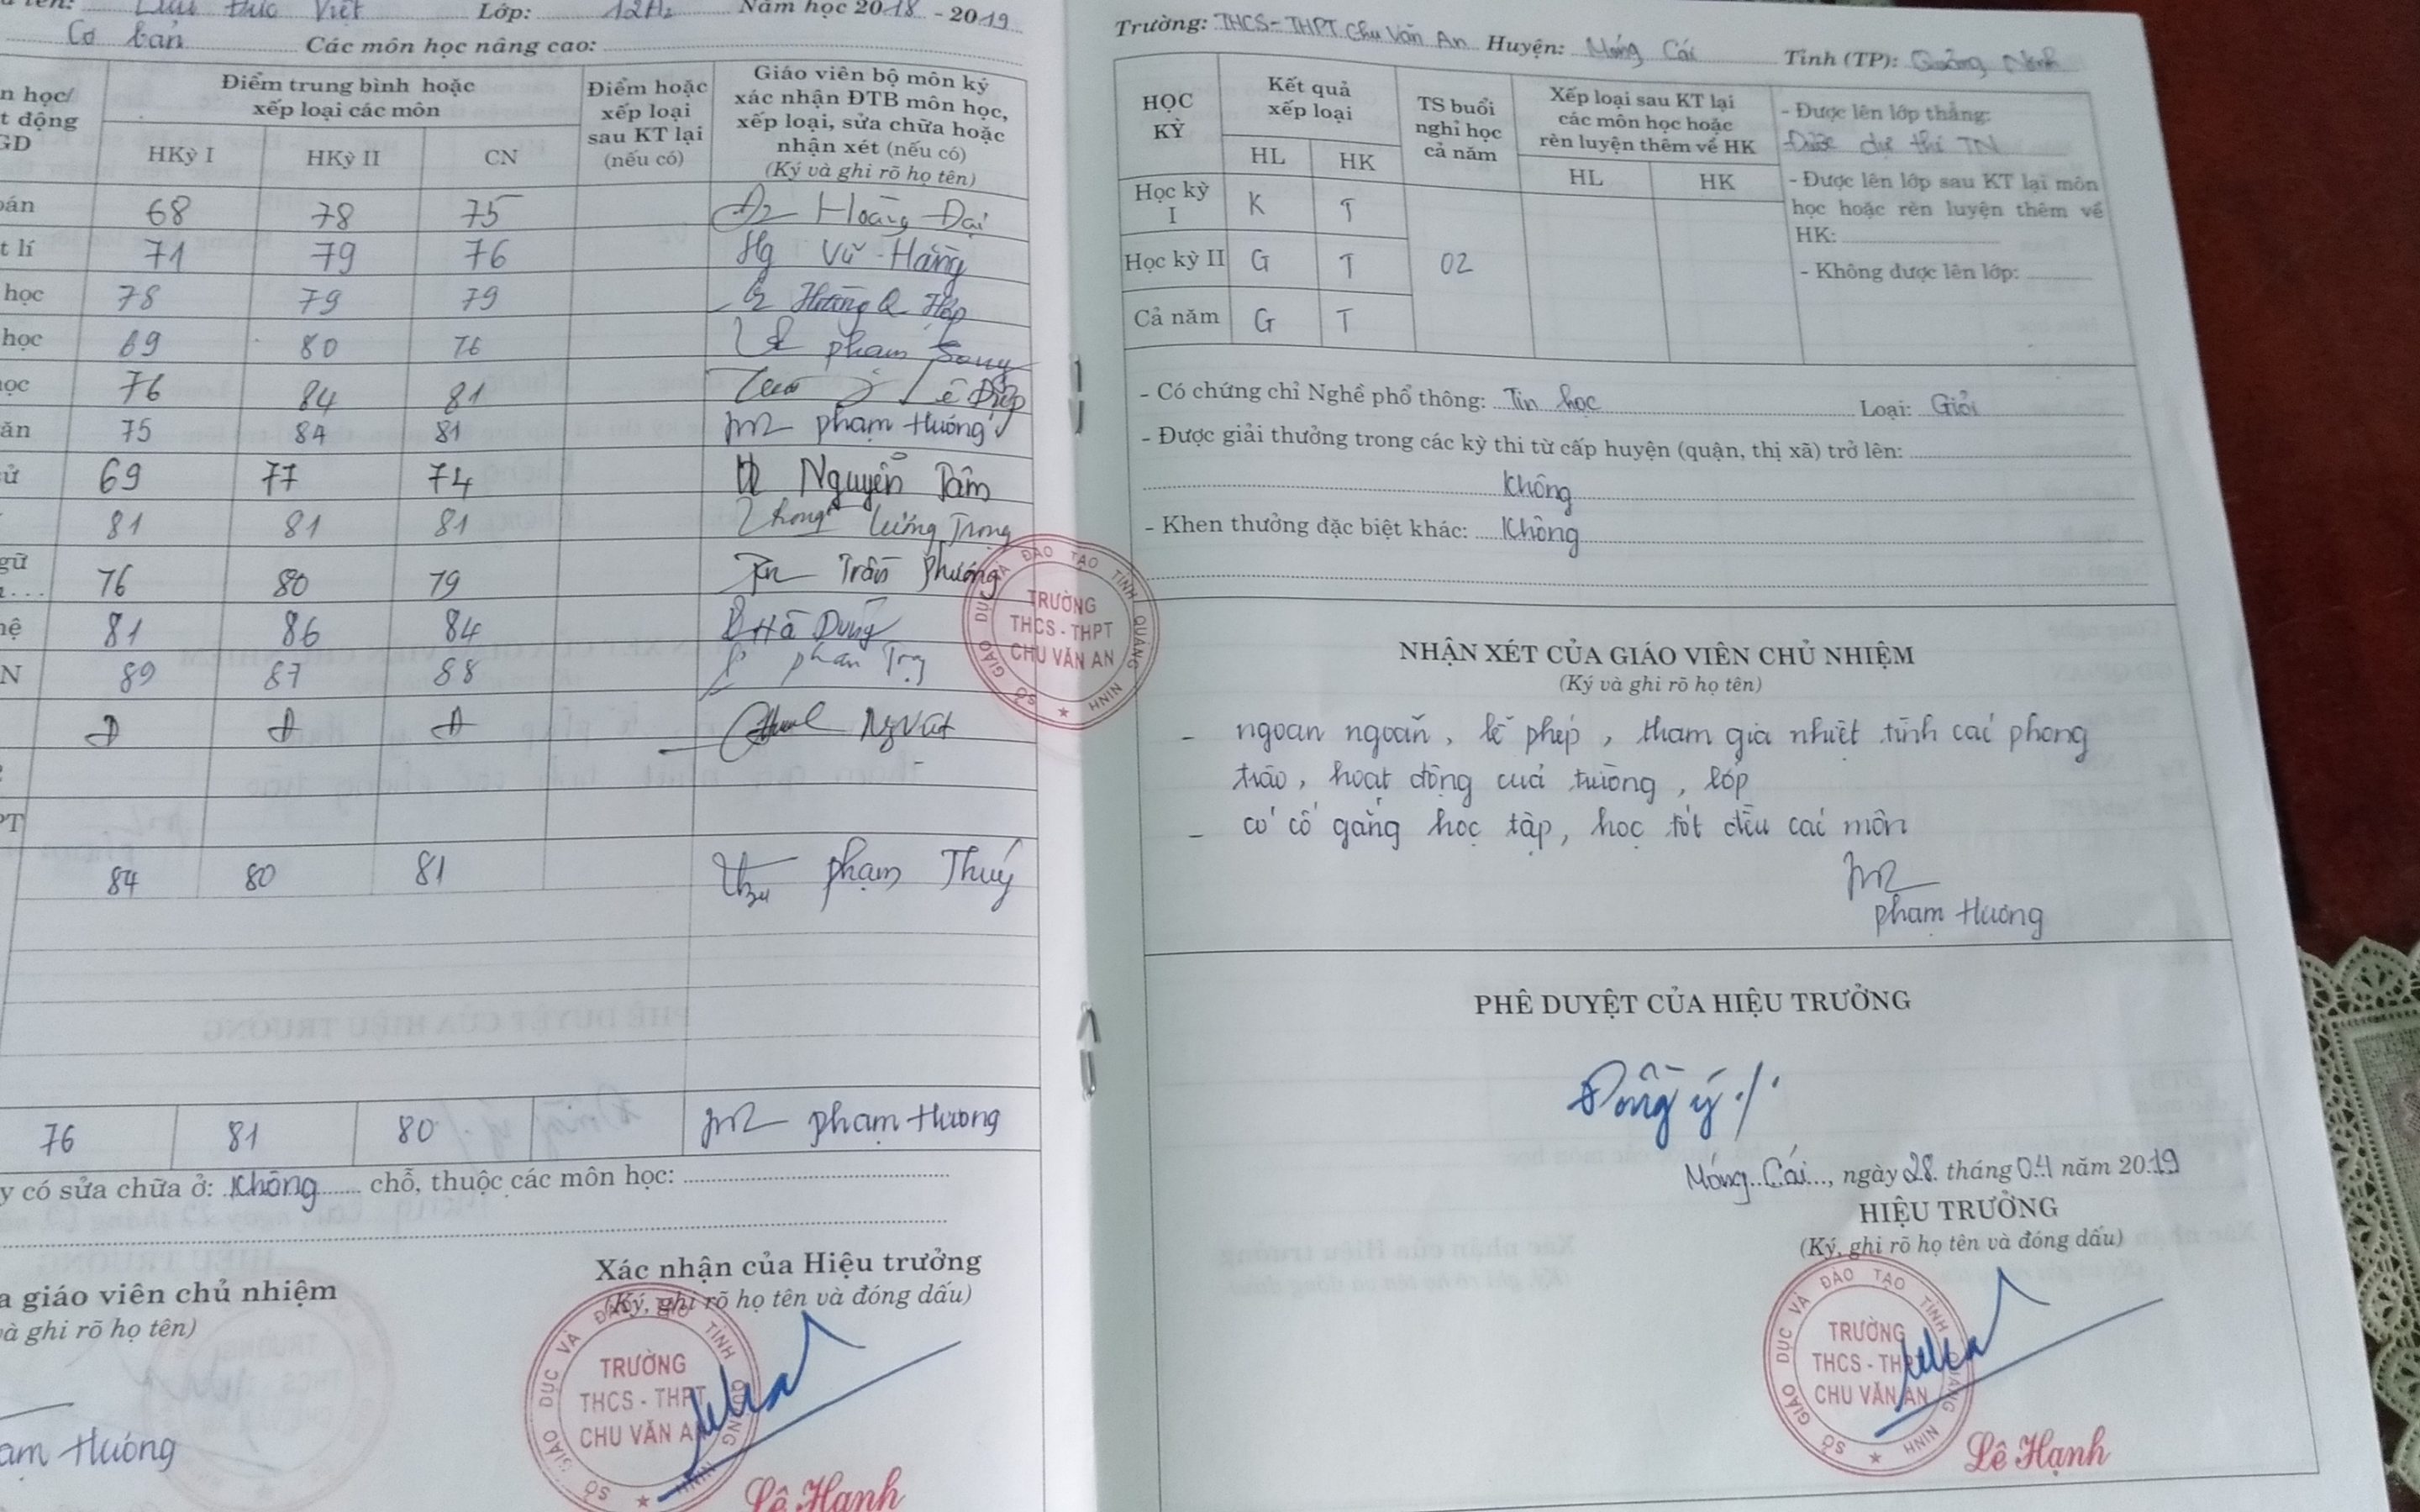 Việt Lớp: 12A2 Năm học 2018 - 2019
Cơ bản Các môn học nâng cao:
n học/
t động
GD
Điểm trung bình hoặc
xếp loại các môn
HKỳ I HKỳ II CN
Điểm hoặc
xếp loại
sau KT lại
(nếu có)
Giáo viên bộ môn ký
xác nhận ĐTB môn học,
xếp loại, sửa chữa hoặc
nhận xét (nếu có)
(Ký và ghi rõ họ tên)
oán 68 78 75 Hoàng Đại
t lí 71 79 76 Vũ Hằng
học 78 79 79 Hoàng Q Hợp
học 69 80 76 phạm
ọc 76 84 81 Lê Điệp
ăn 75 84 81 phạm Hương
ử 69 77 74 Nguyễn Tâm
81 81 81 Lương Trọng
gữ
76 80 79 Trần Phương
hệ 81 86 84 Hà Dung
N 89 87 88 phan
Đ Đ Đ
PT
84 80 81 phạm Thuý
76 81 80 phạm Hương
y có sửa chữa ở: Không chỗ, thuộc các môn học:
a giáo viên chủ nhiệm
và ghi rõ họ tên)
ạm Hương
Xác nhận của Hiệu trưởng
(Ký, ghi rõ họ tên và đóng dấu)
SỞ GIÁO DỤC VÀ ĐÀO TẠO TỈNH QUẢNG NINH
TRƯỜNG
THCS - THPT
CHU VĂN AN
Lê Hạnh
SỞ GIÁO DỤC VÀ ĐÀO TẠO TỈNH QUẢNG NINH
TRƯỜNG
THCS - THPT
CHU VĂN AN
Trường: THCS - THPT Chu Văn An Huyện: Móng Cái Tỉnh (TP): Quảng Ninh
HỌC
KỲ
Kết quả
xếp loại
HL HK
TS buổi
nghỉ học
cả năm
Xếp loại sau KT lại
các môn học hoặc
rèn luyện thêm về HK
HL HK
Học kỳ
I K T
Học kỳ II G T 02
Cả năm G T
- Được lên lớp thẳng:
Được dự thi TN
- Được lên lớp sau KT lại môn
học hoặc rèn luyện thêm về
HK:
- Không được lên lớp:
- Có chứng chỉ Nghề phổ thông: Tin học Loại: Giỏi
- Được giải thưởng trong các kỳ thi từ cấp huyện (quận, thị xã) trở lên:
Không
- Khen thưởng đặc biệt khác: Không
NHẬN XÉT CỦA GIÁO VIÊN CHỦ NHIỆM
(Ký và ghi rõ họ tên)
- ngoan ngoãn, lễ phép, tham gia nhiệt tình các phong
trào, hoạt động của trường, lớp
- có cố gắng học tập, học tốt đều các môn
phạm Hương
PHÊ DUYỆT CỦA HIỆU TRƯỞNG
Đồng ý ./.
Móng Cái, ngày 28 tháng 04 năm 2019
HIỆU TRƯỞNG
(Ký, ghi rõ họ tên và đóng dấu)
SỞ GIÁO DỤC VÀ ĐÀO TẠO TỈNH QUẢNG NINH
TRƯỜNG
THCS - THPT
CHU VĂN AN
Lê Hạnh